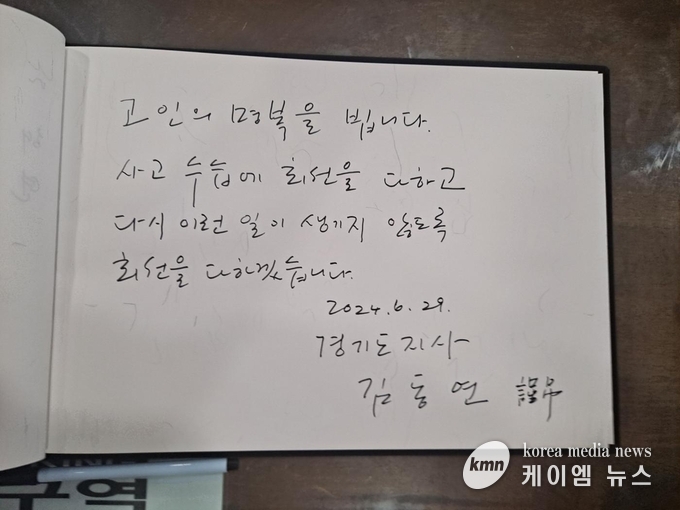 고인의 명복을 빕니다.
사고 수습에 최선을 다하고
다시 이런 일이 생기지 않도록
최선을 다하겠습니다.
2024.6.29.
경기도지사
김동연 謹弔
구역
kmn
korea media news
케이엠 뉴스